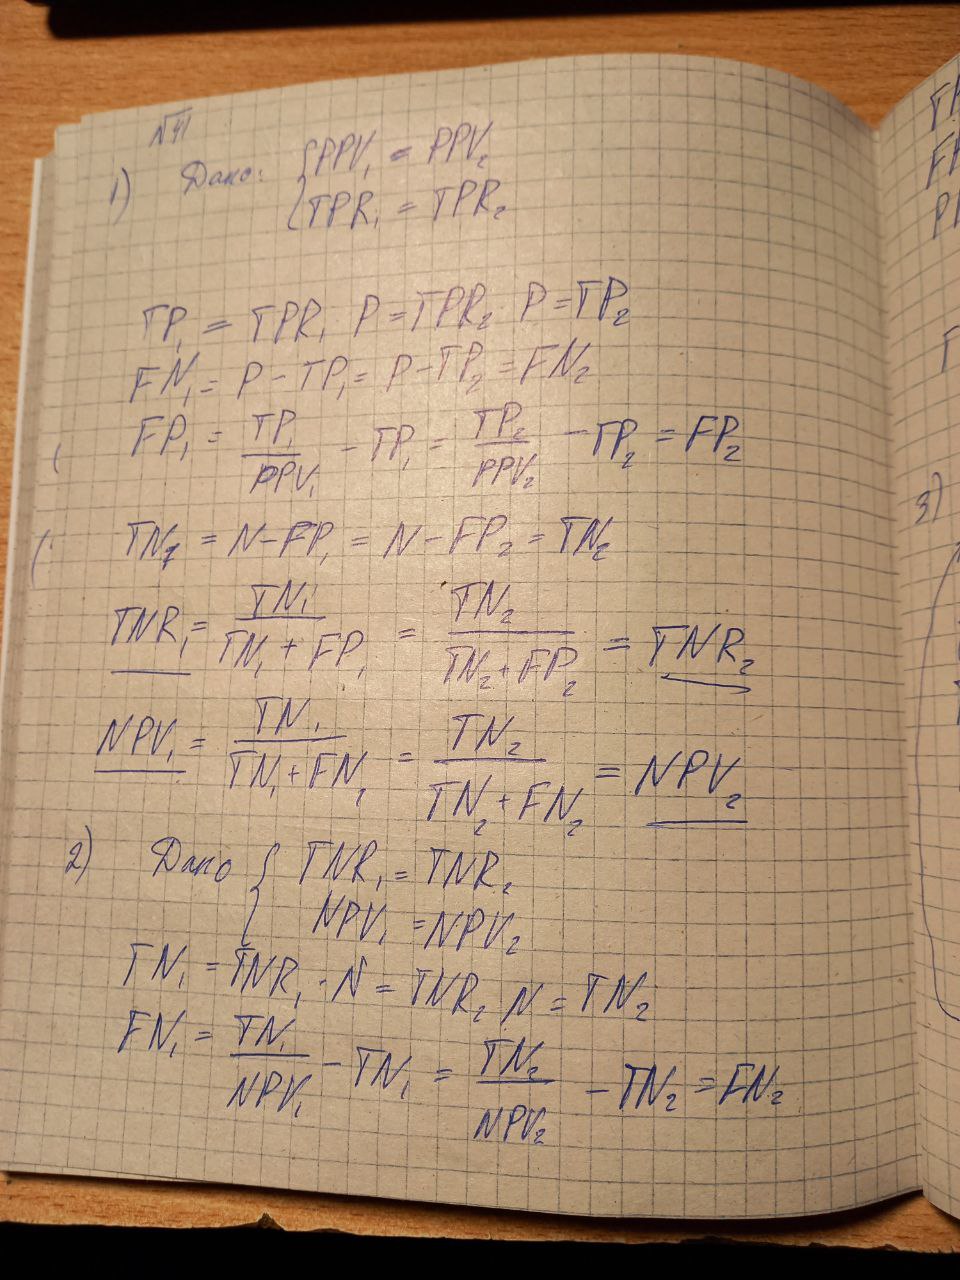 №41
1) Дано: { PPV₁ = PPV₂
TPR₁ = TPR₂
TP₁ = TPR₁ · P = TPR₂ · P = TP₂
FN₁ = P - TP₁ = P - TP₂ = FN₂
FP₁ = TP₁/PPV₁ - TP₁ = TP₂/PPV₂ - TP₂ = FP₂
TN₁ = N - FP₁ = N - FP₂ = TN₂
TNR₁ = TN₁/(TN₁ + FP₁) = TN₂/(TN₂ + FP₂) = TNR₂
NPV₁ = TN₁/(TN₁ + FN₂) = TN₂/(TN₂ + FN₂) = NPV₂
2) Дано { TNR₁ = TNR₂
NPV₁ = NPV₂
TN₁ = TNR₁ · N = TNR₂ N = TN₂
FN₁ = TN₁/NPV₁ - TN₁ = TN₂/NPV₂ - TN₂ = FN₂
3)